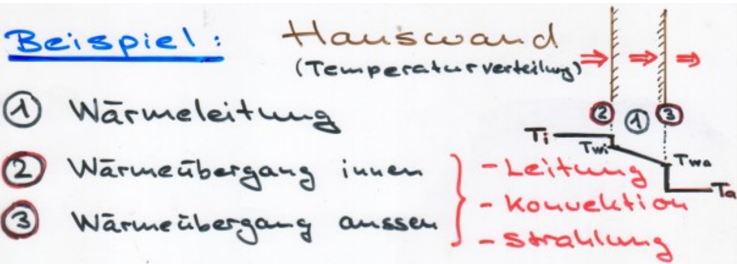 Beispiel: Hauswand
(Temperaturverteilung)
① Wärmeleitung
② Wärmeübergang innen
③ Wärmeübergang aussen
- Leitung
- Konvektion
- Strahlung
② ① ③
Ti
Twi
Twa
Ta